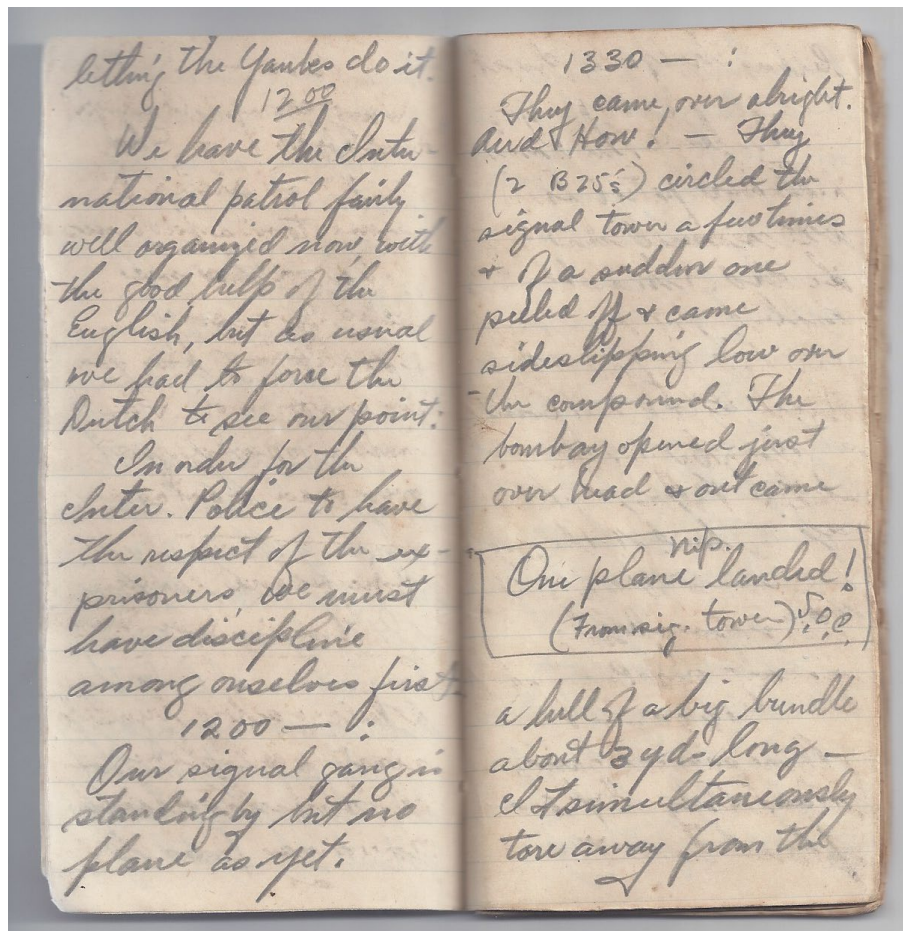 letting the Yankes do it.
1200
We have the Inter-
national patrol fairly
well organized now with
the good help of the
English, but as usual
we had to force the
Dutch to see our point.
In order for the
Inter. Police to have
the respect of the ex-
prisoners, we must
have discipline
among ourselves first
1200 — :
Our signal gang is
standing by but no
plane as yet.
1330 — :
They came, over alright.
And How! — They
(2 B25s) circled the
signal tower a few times
& of a sudden one
peeled off & came
sideslipping low over
the compound. The
bombay opened just
over head & out came
nip.
One plane landed!
(From sig. tower)
a hell of a big bundle
about 3 yd. long —
It simultaneously
tore away from the